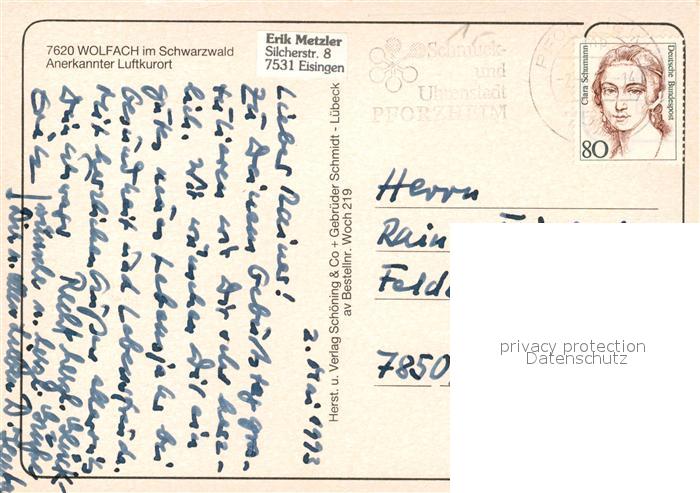 7620 WOLFACH im Schwarzwald
Anerkannter Luftkurort
Erik Metzler
Silcherstr. 8
7531 Eisingen
Schmuck-
und
Uhrenstadt
PFORZHEIM
Clara Schumann
Deutsche Bundespost
80
2. Mai 1993
Lieber Rainer!
Zu Deinem Geburtstag gra-
tulieren wir Dir sehr herz-
lich. Wir wünschen Dir ein
gutes neues Lebensjahr bei
Gesundheit und Lebensfreude.
Mit herzlichen Grüßen
Herst. u. Verlag Schöning & Co + Gebrüder Schmidt - Lübeck
av Bestellnr. Woch 219
Herrn
Rain
Feld
7850
privacy protection
Datenschutz